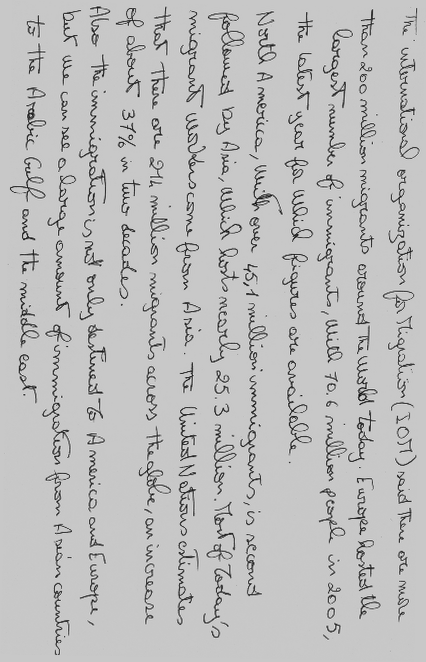 The international organization for Migration (IOM) said there are more
than 200 million migrants around the world today. Europe hosted the
largest number of immigrants, with 70.6 million people in 2005,
the latest year for which figures are available.
North America, with over 45,1 million immigrants, is second
followed by Asia, which hosts nearly 25.3 million. Most of today's
migrant workers come from Asia. The United Nations estimates
that there are 214 million migrants across the globe, an increase
of about 37% in two decades.
Also the immigration is not only destined to America and Europe,
but we can see a large amount of immigration from Asian countries
to the Arabic Gulf and the middle east.